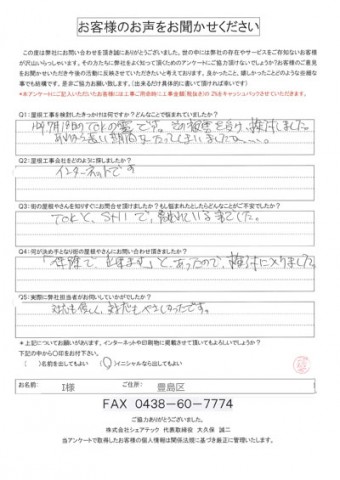 お客様のお声をお聞かせください
この度は弊社にお問い合わせを頂き誠にありがとうございました。世の中には弊社の存在やサービスをご存知ないお客様
が沢山いらっしゃいます。その方たちに弊社をよく知って頂くためのアンケートにご協力頂けないでしょうか?お客様のご意見
をお聞かせいただき今後の活動に反映させていただきたいと考えております。良かったこと、嬉しかったことどのような些細な
事でも結構です。是非ご協力お願い致します。(出来るだけ具体的に書いて頂ければ幸いです)
*本アンケートにご記入いただいたお客様には工事ご用命時に工事金額(税抜き)の2%をキャッシュバックさせていただきます。
Q1:屋根工事を検討したきっかけは何ですか?どんなことで悩まれていましたか?
Q2:屋根工事会社をどのように探しましたか?
インターネットです
Q3:街の屋根やさんを知りすぐにお問合せ頂けましたか?もし悩まれたとしたらどんなことがご不安でしたか?
Q4:何が決め手となり街の屋根やさんにお問い合わせ頂きましたか?
とあったので、
Q5:実際に弊社担当者がお伺いしていかがでしたか?
*上記についてお願いがあります。インターネットや印刷物に掲載させて頂いてもよろしいでしょうか?
下記の中から〇印をお付け下さい。
( )名前を出してもよい (〇)イニシャルなら出してもよい
お名前: I様 ご住所: 豊島区
FAX 0438-60-7774
ご協力ありがとうございました。
株式会社シェアテック 代表取締役 大久保 誠二
当アンケートで取得したお客様の個人情報は関係法規に基づき厳正に管理いたします。